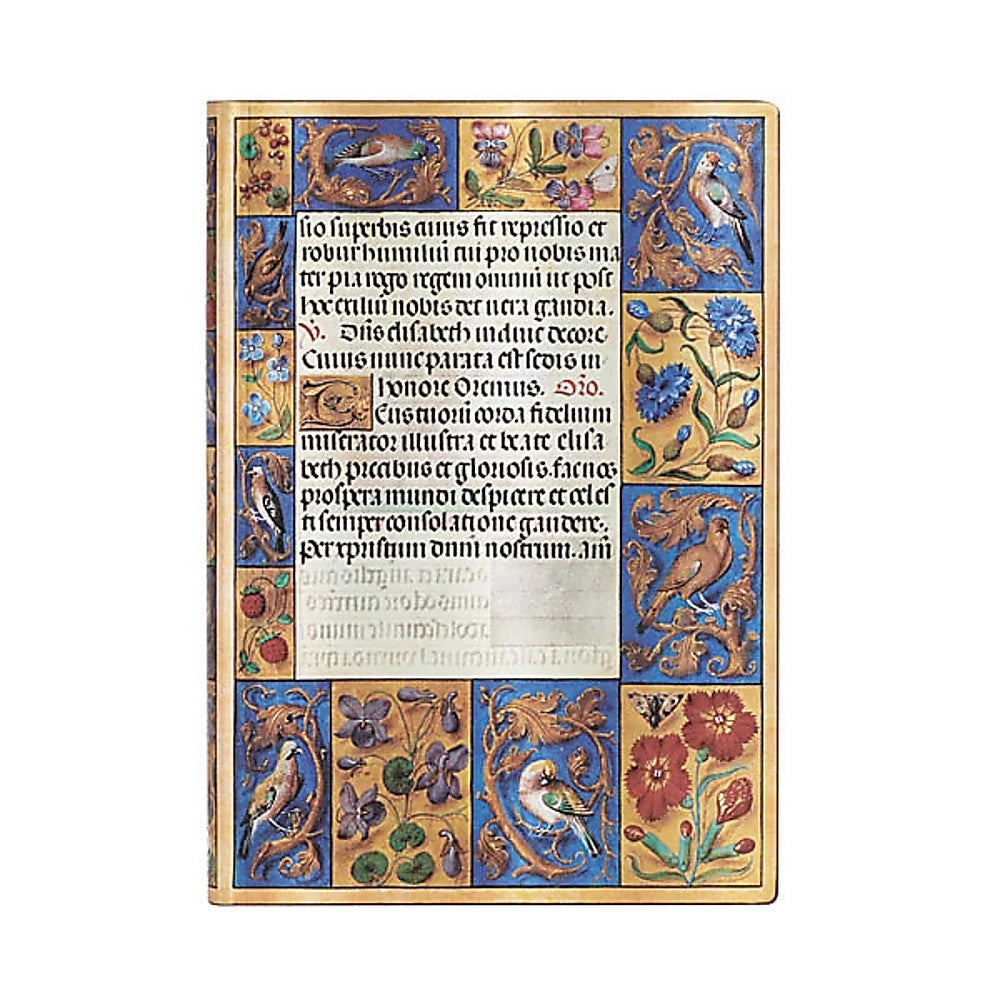 sio superbis cuius fit repressio et
robur humiliũ tui pro nobis ma
ter pia rogo regem omniũ ut post
hoc exiliũ nobis det uera gaudia.
V. Dña elisabeth induit decore
Cuius nunc parata est sedis in
honore Oremus. Orõ.
Deus tuorũ corda fidelium
miserator illustra et beate elisa
beth precibus et gloriosis fac nos
prospera mundi despicere et celes
ti semper consolatione gaudere.
Per xpristum dnm̃ nostrum. am̃